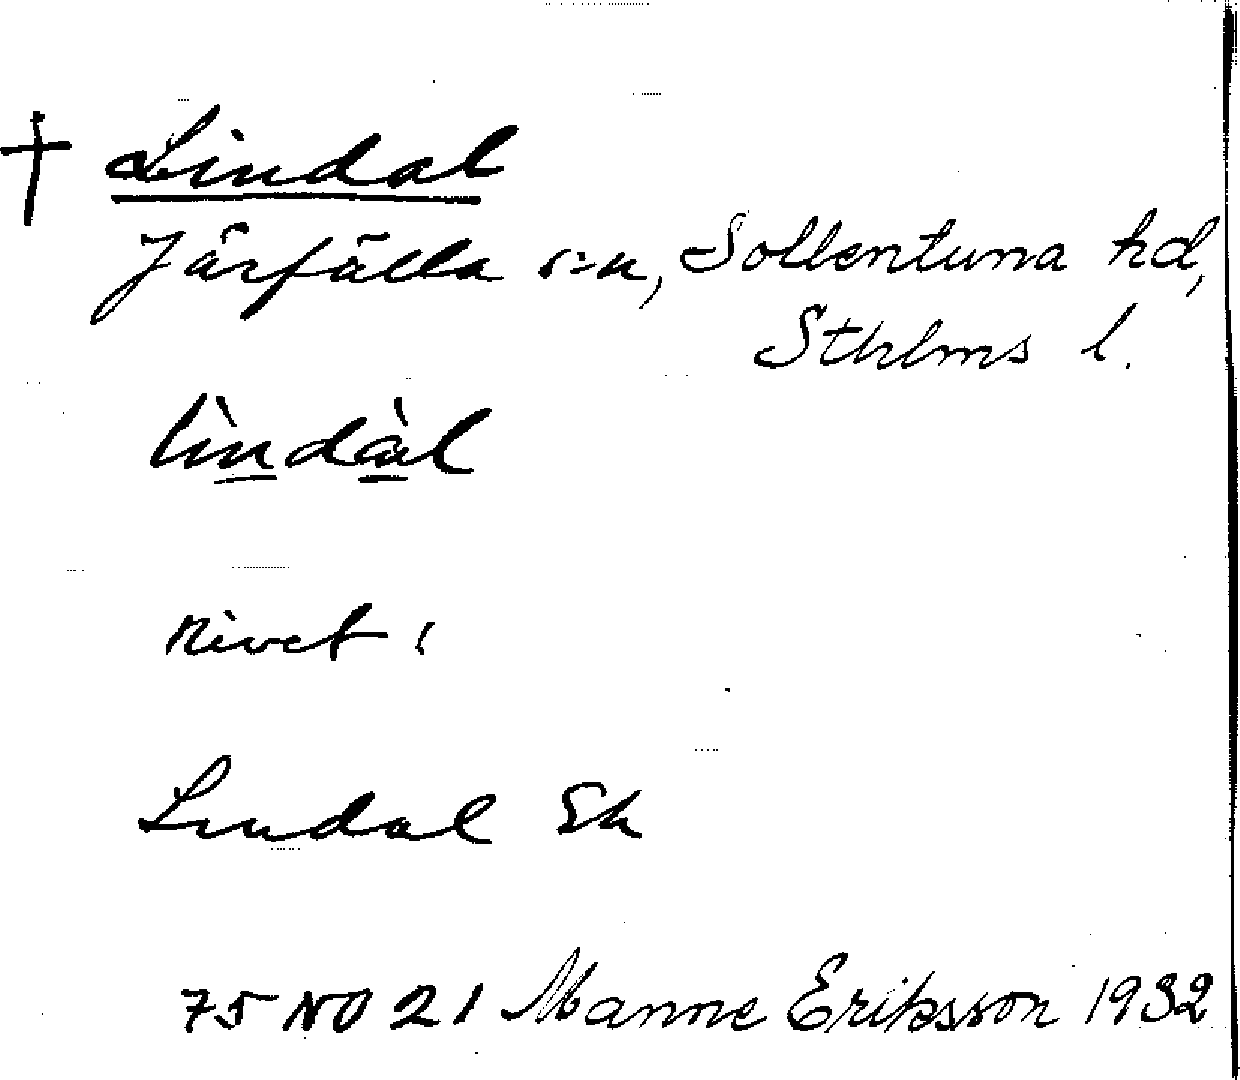 † Lindal
Järfälla s:n, Sollentuna hd,
Sthlms l.
lìndàl
rivet
Lindal Ek
75 NO 21 Manne Eriksson 1932